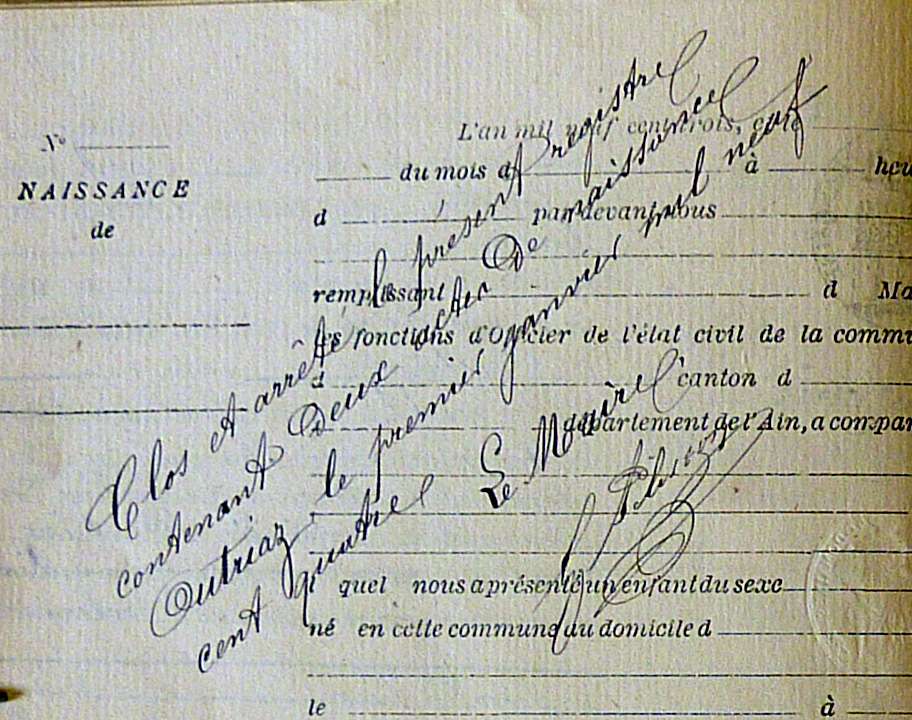 L'an mil neuf cent trois, et le
N°
du mois d à heu
NAISSANCE
d par devant nous
de
remplissant d Ma
les fonctions d'Officier de l'état civil de la commu
d canton d
département de l'Ain, a compar
l quel nous a présenté un enfant du sexe
né en cette commune au domicile d
le à
Clos et arrêté le présent registre
contenant Deux actes De naissance
Outriaz le premier janvier mil neuf
cent quatre Le Maire